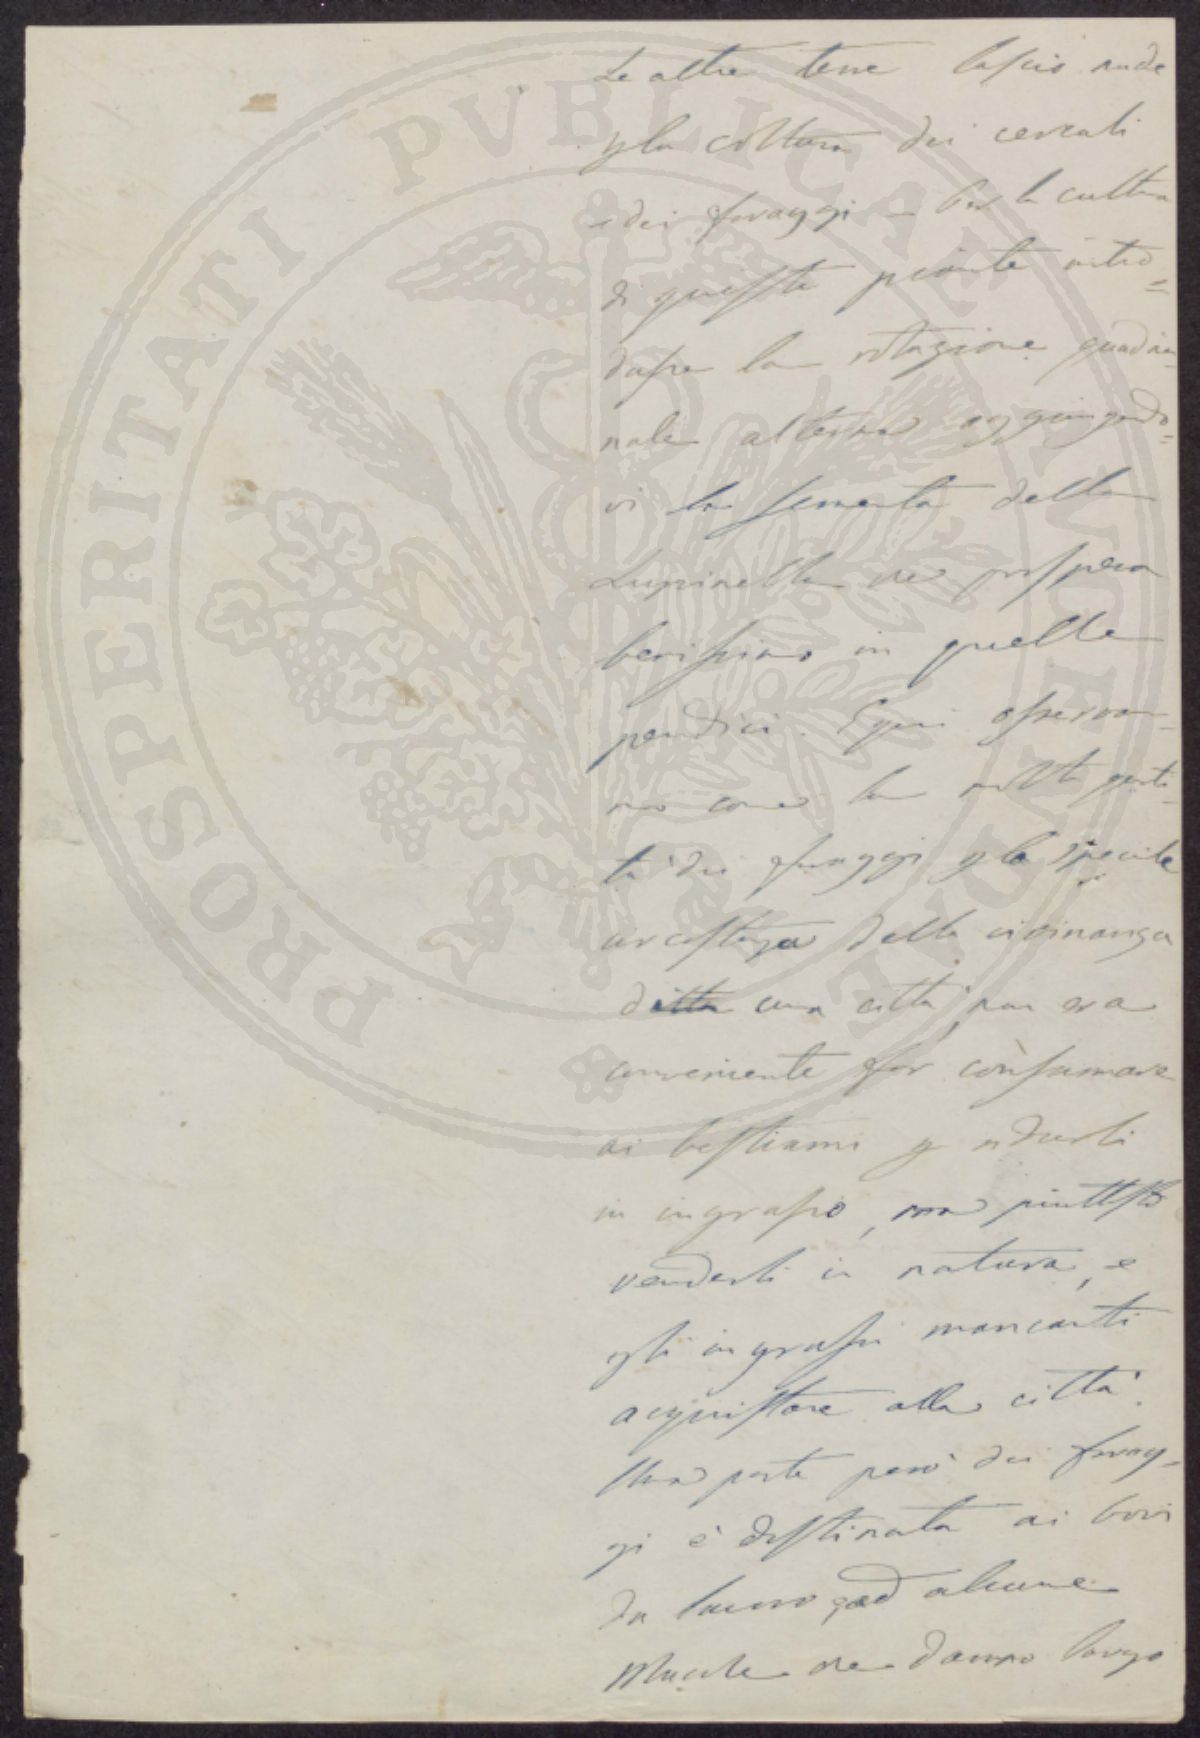 Le altre terre lascio nude
p la coltura dei cereali
e dei foraggi – Per la cultura
di queste piante intro=
dusse la rotazione quadrien=
nale alterna aggiungendo=
vi la sementa della
Lupinella che prospera
benissimo in quelle
pendici. Egui osserva-
no come la molta quanti-
tà dei foraggi p la speciale
circostanza della vicinanza
d una città, non era
conveniente far consumare
ai bestiami p ridurli
in ingrasso, ma piuttosto
venderli in natura, e
gli ingrassi mancanti
acquistare alla città.
Una parte però dei forag=
gi è destinata ai bovi
da lavoro, ad alcune
che danno
PROSPERITATI PVBLICAE AVGENDAE